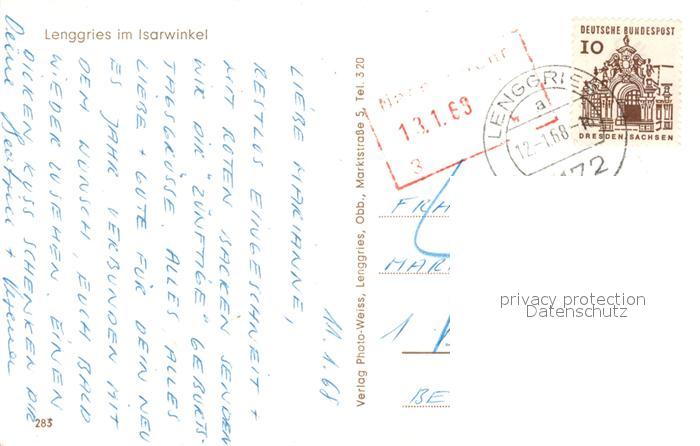 Lenggries im Isarwinkel
11.1.68
LIEBE MARIANNE,
RESTLOS EINGESCHNEIT +
MIT ROTEN BACKEN SENDEN
WIR DIR "ZÜNFTIGE" GEBURTS-
TAGSGRÜSSE. ALLES ALLES
LIEBE + GUTE FÜR DEIN NEU
ES JAHR VERBUNDEN MIT
DEM WUNSCH, EUCH BALD
WIEDER ZUSEHEN. EINEN
DICKEN KUSS SCHENKEN DIR
Deine +
283
Verlag Photo-Weiss, Lenggries, Obb., Marktstraße 5, Tel. 320
13.1.68
3
LENGGRIES
a
12.-1.68-
172
DEUTSCHE BUNDESPOST
10
DRESDEN/SACHSEN
FRA
MAR
1
BE
privacy protection
Datenschutz